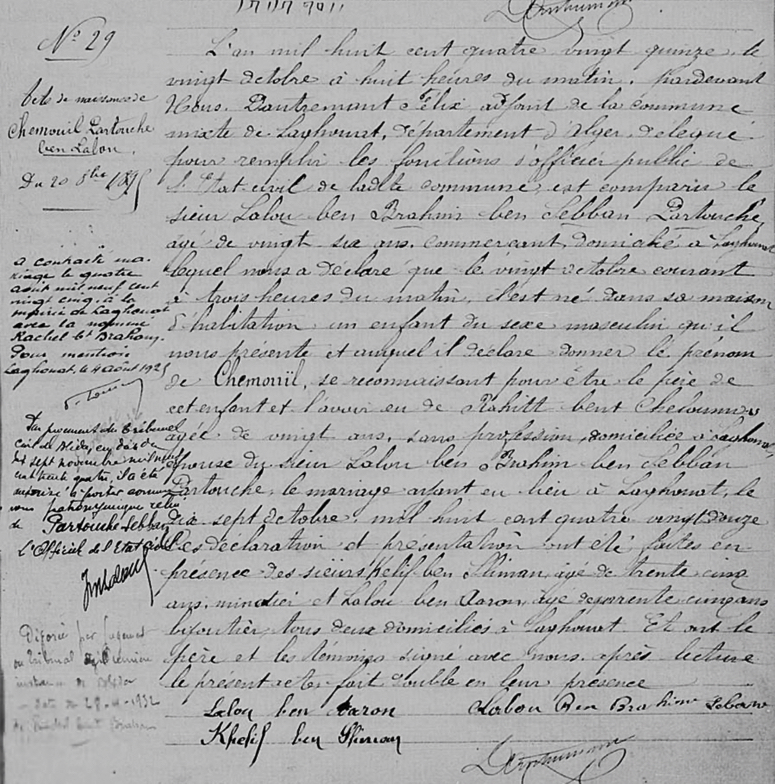 N° 29
Acte de naissance de
Chemouil Partouche
ben Lalou.
Du 20 8bre 1895
a contracté ma-
riage le quatre
août mil neuf cent
vingt cinq à la
mairie de Laghouat
avec la nommée
Rachel Bt Brahim.
Pour mention
Laghouat, le 4 août 1925
Par jugement du Tribunal
civil de Blida, en date du
sept novembre mil neuf
cent trente quatre, a été
autorisé à porter comme
nom patronymique celui
de Partouche Sebban
L'Officier de l'Etat civil
Divorcé par jugement
du Tribunal de première
instance de Blida
date du 29-4-1932
de Rachel bent Brahim
L'an mil huit cent quatre vingt quinze, le
vingt octobre à huit heures du matin, pardevant
Nous, Dautremant Félix adjoint de la commune
mixte de Laghouat, département d'Alger, délégué
pour remplir les fonctions d'officier public de
l'Etat civil de ladite commune, est comparu le
sieur Lalou ben Brahim ben Sebban Partouche,
âgé de vingt six ans, commerçant, domicilié à Laghouat
lequel nous a déclaré que le vingt octobre courant
à trois heures du matin, il est né dans sa maison
d'habitation un enfant du sexe masculin qu'il
nous présente et auquel il déclare donner le prénom
de Chemouïl, se reconnaissant pour être le père de
cet enfant et l'avoir eu de bent
âgée de vingt ans, sans profession, domiciliée à Laghouat,
épouse du sieur Lalou ben Brahim ben Sebban
Partouche, le mariage ayant eu lieu à Laghouat, le
dix sept octobre mil huit cent quatre vingt douze
Les déclaration et présentation ont été faites en
présence des sieurs Khelif ben Sliman, âgé de trente cinq
ans, et Lalou ben Aaron, âgé de cinq ans
bijoutier, tous deux domiciliés à Laghouat Et ont le
père et les témoins signé avec nous après lecture
le présent acte, fait double en leur présence
Lalou ben Aaron Lalou Ben Brahim Seban
Khelif ben Sliman